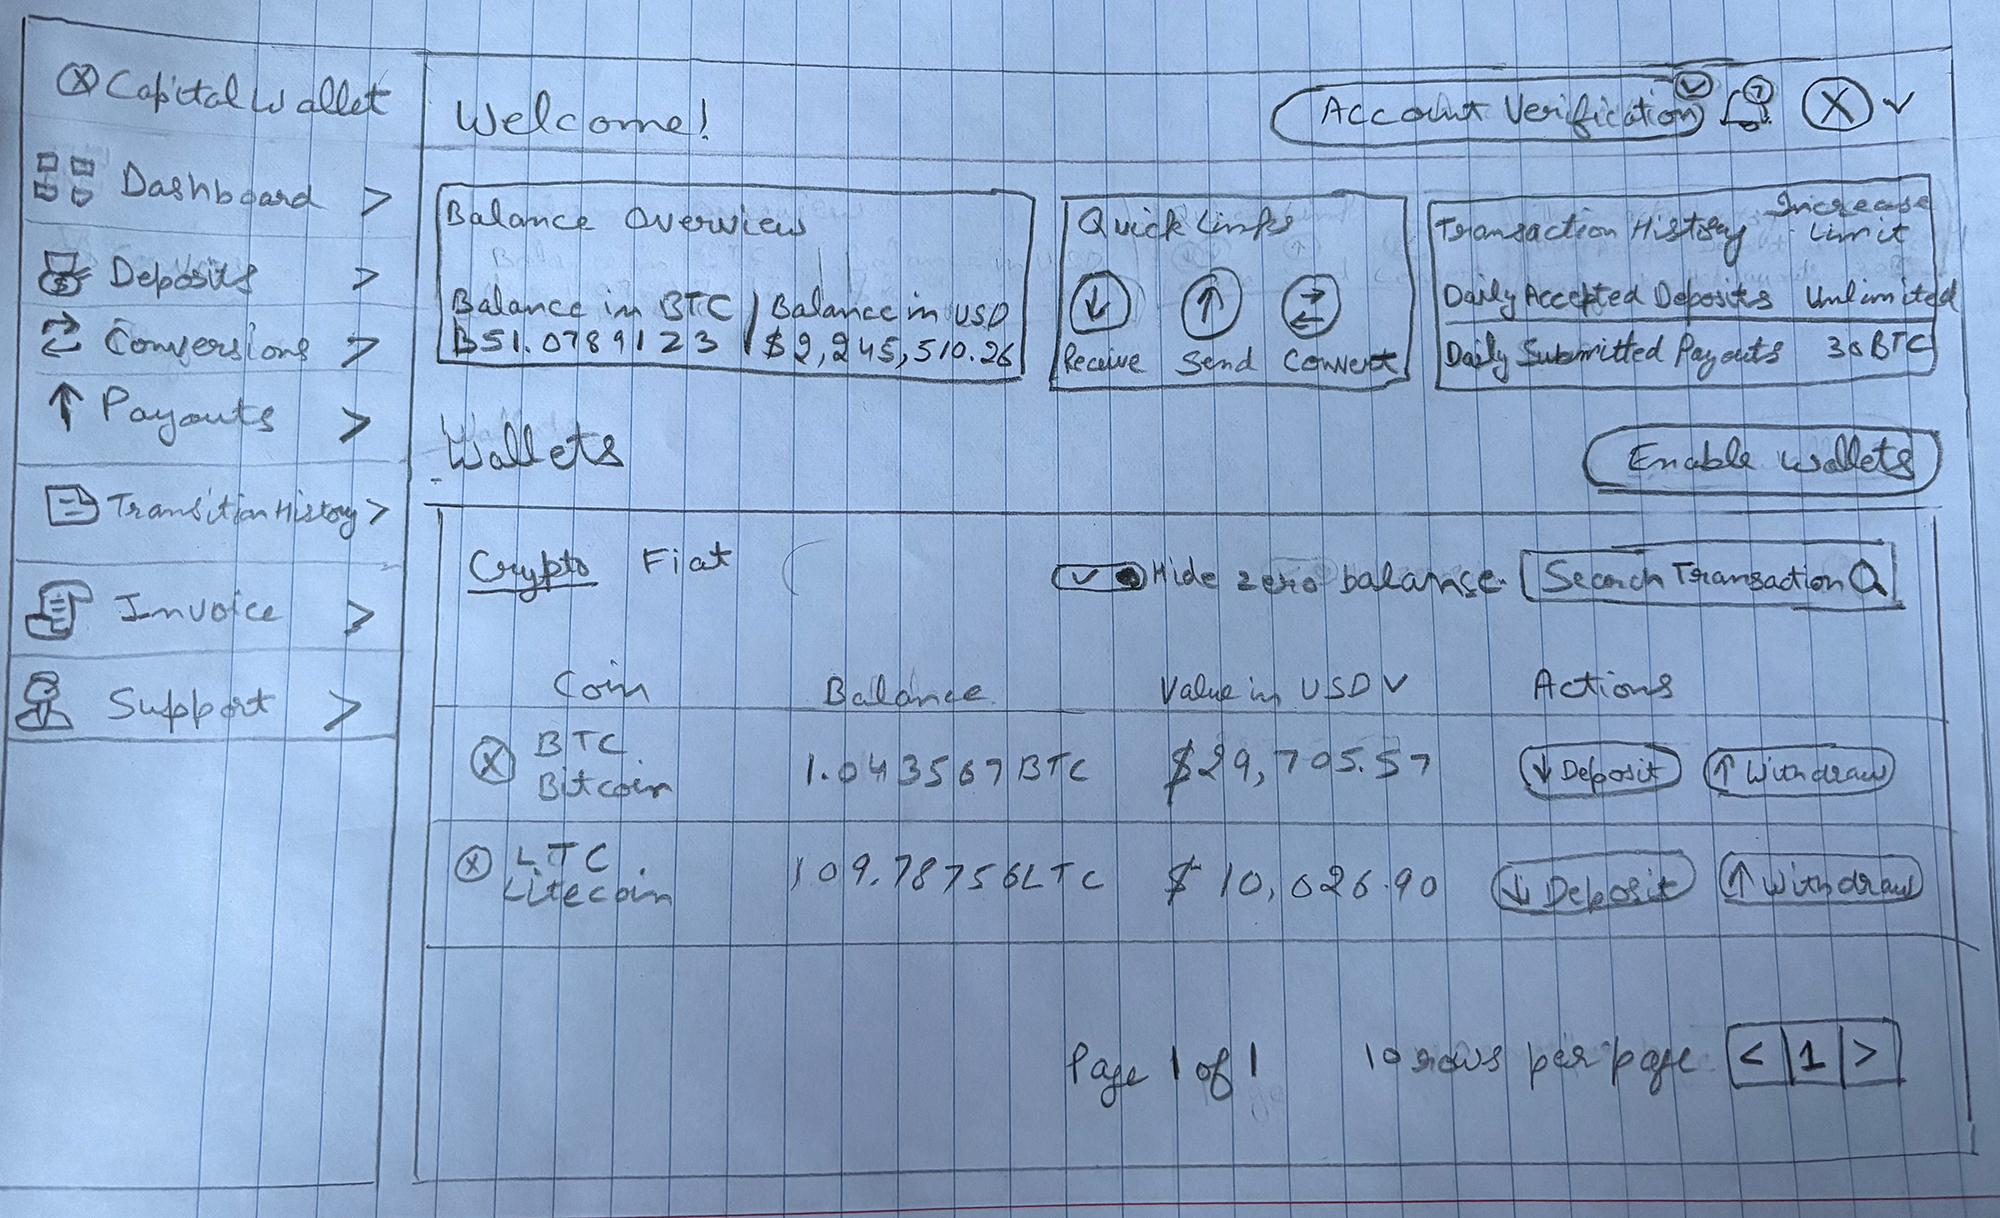 Capital Wallet
Dashboard >
Deposits >
Conversions >
Payouts >
Transition History >
Invoice >
Support >
Welcome!
Account Verification
Balance Overview
Balance in BTC | Balance in USD
₿51.0789123 | $2,245,510.26
Quick Links
Receive Send Convert
Transaction History Increase Limit
Daily Accepted Deposits Unlimited
Daily Submitted Payouts 30 BTC
Wallets
Enable Wallets
Crypto Fiat
Hide zero balance.
Search Transaction
Coin Balance Value in USD Actions
BTC
Bitcoin
1.043567 BTC $29,705.57 ↓ Deposit ↑ Withdraw
LTC
Litecoin
109.78756 LTC $10,026.90 ↓ Deposit ↑ Withdraw
Page 1 of 1 10 rows per page < | 1 | >